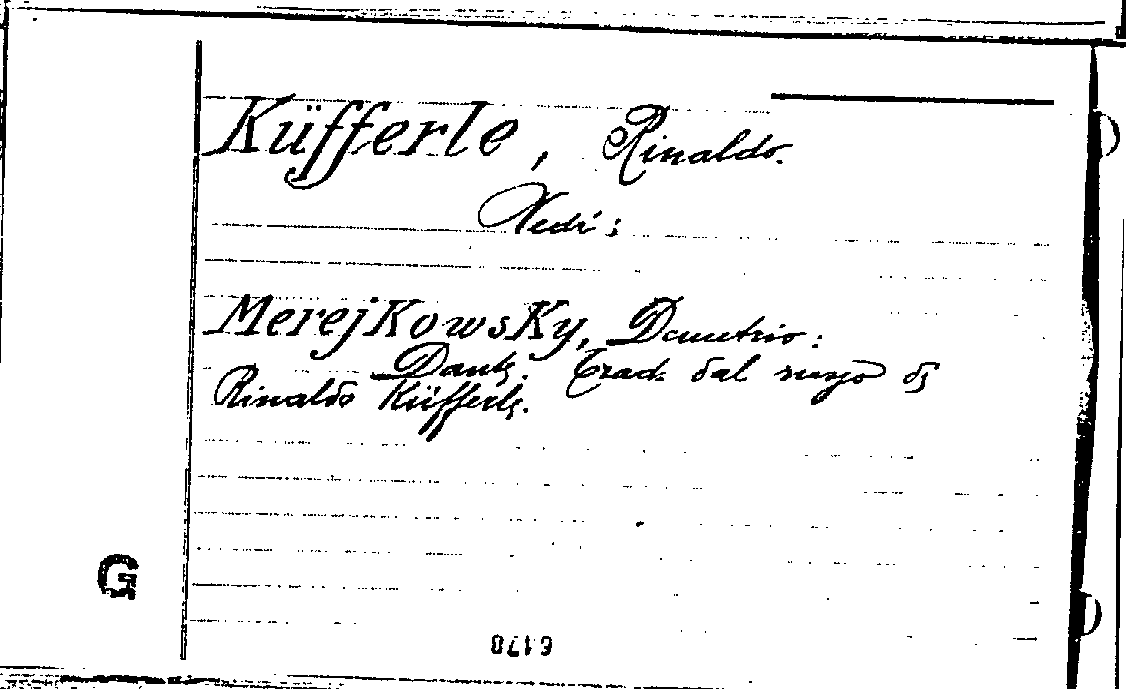 Küfferle, Rinaldo.
Vedi:
Merejkowsky, Demetrio:
Dante. Trad. dal russo di
Rinaldo Küfferle.
G